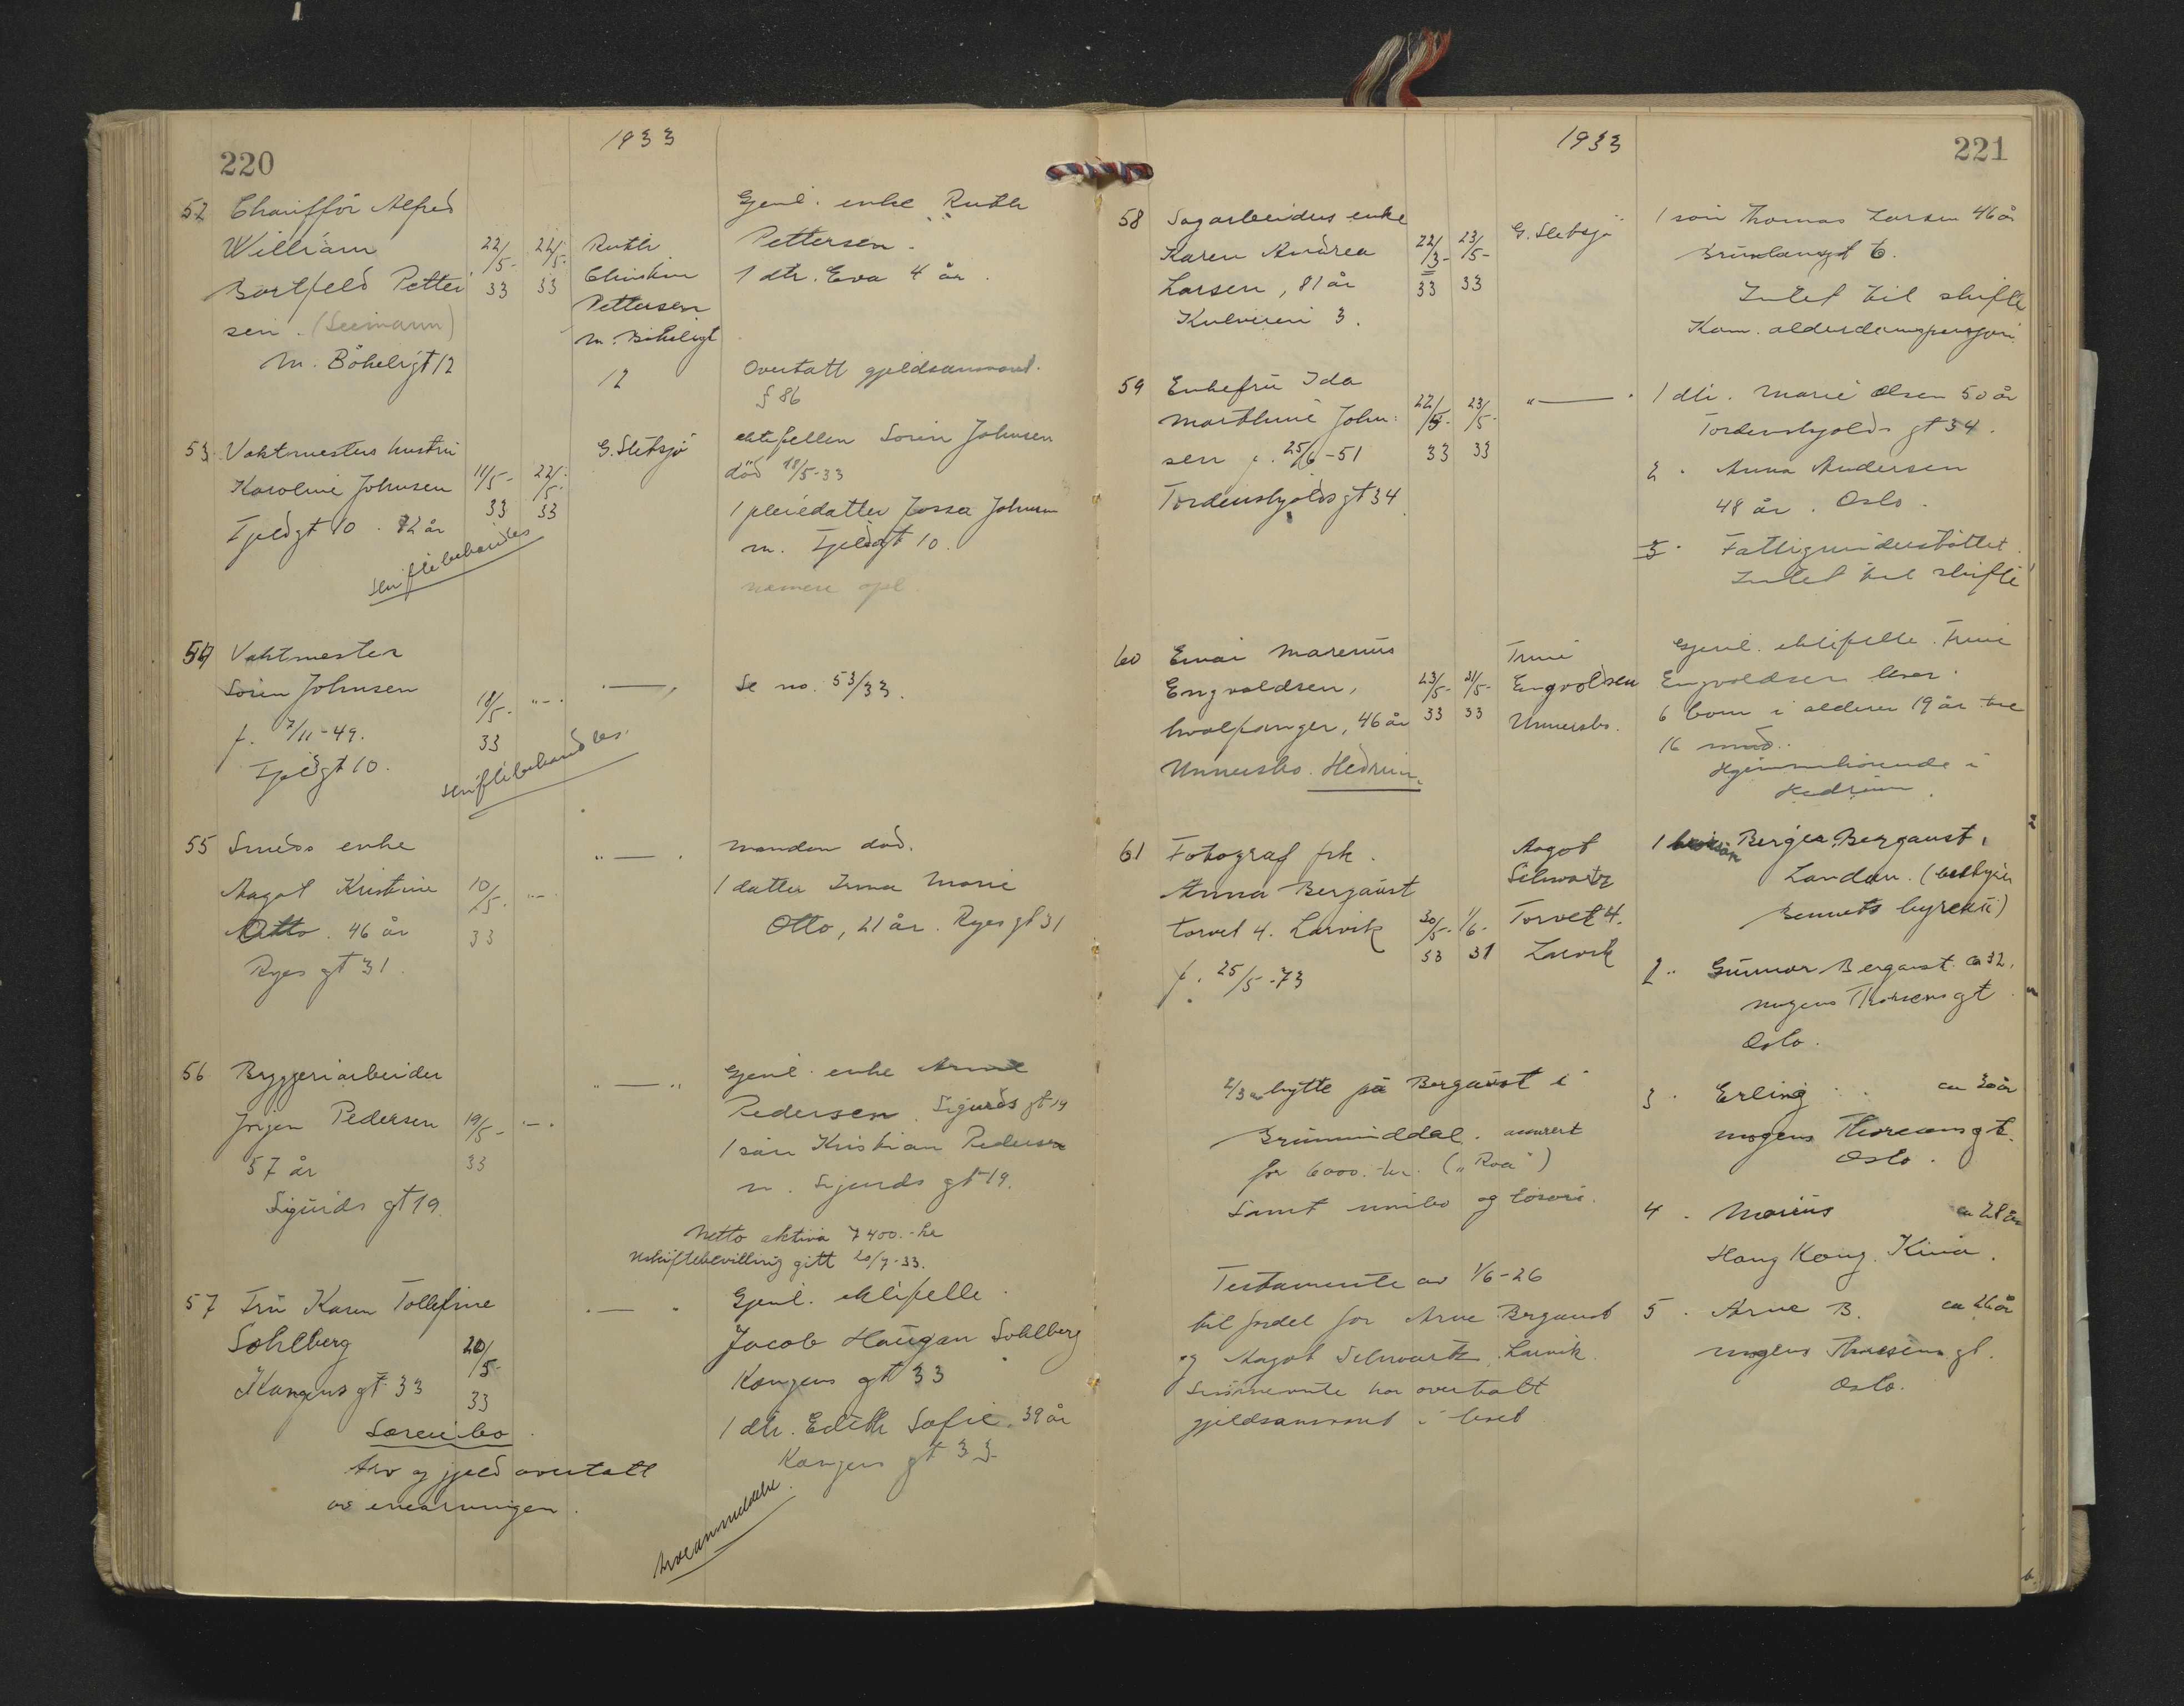 220
1933
52 Chauffør Alfred
William
Bortfeld Petter
sen. (Seemann)
m. Bøkeligt 12
22/5-33
22/5-33
Ruth
Christine
Pettersen
m. Bøkeligt
12
Gjenl. enke Ruth
Pettersen.
1 dtr. Eva 4 år.
Overtatt gjeldsansvaret.
§ 86
53 Vaktmesters hustru
Karoline Johnsen
Fjeldgt 10. 82 år
skiftebehandles
11/5-33
22/5-33
G. Sletsjø
ektefellen Sørin Johnsen
död 18/5-33
1 pleiedatter Johnsen
m. Fjeldgt 10.
nærmere opl.
54 Vaktmester
Sørin Johnsen
f. 7/11-49.
Fjeldgt 10.
skiftebehandles.
18/5-33
"-"
"—"
Se no. 53/33.
55 Smeds enke
Aagot Kristine
Otto. 46 år
Ryes gt 31.
10/5-33
"-"
"—"
manden död.
1 datter Irma Marie
Otto, 21 år. Ryes gt 31
56 Bryggeriarbeider
Jørgen Pedersen
57 år
Sigurds gt 19.
19/5-33
"-"
"—"
Gjenl. enke
Pedersen. Sigurds gt 19
1 sön Kristian Pedersen
m. Sigurds gt 19.
Netto aktiva 7400.- kr
Uskiftebevilling gitt 20/7-33.
57 Fru Karen Tollefine
Sohlberg
Kongens gt 33
Særeiebo.
Arv og gjeld overtatt
av enearvingen.
20/5-33
"—"
Gjenl. ektefelle.
Jacob Haugan Sohlberg
Kongens gt 33
1 dtr. Edith Sofie. 39 år
Kongens gt 33
Arveanmeldelse.
1933
221
58 Sagarbeiders enke
Karen Andrea
Larsen, 81 år
Kulveien 3.
22/3-33
23/5-33
G. Sletsjø
1 sön Thomas Larsen 46 år
Brunlanesgt 6.
Intet til skifte
Kom. alderdomspensjon.
59 Enkefru Ida
Marthine John-
sen f. 25/6-51
Tordenskjolds gt 34.
22/5-33
23/5-33
"—"
1 dtr. Marie Olsen 50 år
Tordenskjolds gt 34.
2 " Anna Andersen
48 år. Oslo.
3 " Fattigunderstöttet.
Intet til skifte
60 Einar Marenius
Engvoldsen,
hvalfanger, 46 år
Unnersbo. Hedrum.
23/5-33
31/5-33
Trine
Engvoldsen
Unnersbo.
Gjenl. ektefelle. Trine
Engvoldsen lever.
6 barn i alderen 19 år til
16 mnd.
Hjemmehörende i
Hedrum.
61 Fotograf frk.
Anna Bergaust
Torvet 4. Larvik
f. 25/5-73
30/5-33
1/6-31
Aagot
Schwartz
Torvet 4.
Larvik
1 Berger Bergaust,
London. (bestyrer
Bennets byrå)
2 " Gunnar Bergaust. ca 32.
Mogens Thorsens gt
Oslo.
3 " Erling " ca 30 år
Mogens Thorsens gt.
Oslo.
4 " Marius ca 28 år
Hong Kong. Kina.
5 " Arne B. ca 26 år
Mogens Thorsens gt.
Oslo.
2/3 av hytte på Bergaust i
Brummiddal. assurert
for 6000.- kr. ("Roa")
Samt innbo og lösöre.
Testamente av 1/6-26
til fordel for Arne Bergaust
og Aagot Schwartz, Larvik.
har overtatt
gjeldsansvaret i boet